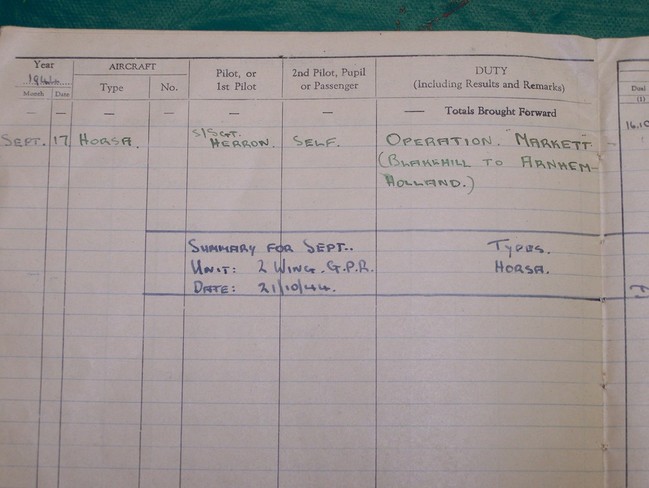 Year AIRCRAFT Pilot, or 2nd Pilot, Pupil DUTY
1944 Type No. 1st Pilot or Passenger (Including Results and Remarks)
Month Date Dual
(1)
— — — — — — — Totals Brought Forward
SEPT. 17 HORSA. S/SGT. HERRON. SELF. OPERATION. "MARKETT
(BLAKEHILL TO ARNHEM-
HOLLAND.)
16.10
SUMMARY FOR SEPT.. TYPES.
UNIT: 2 WING. G.P.R. HORSA.
DATE: 21/10/44.